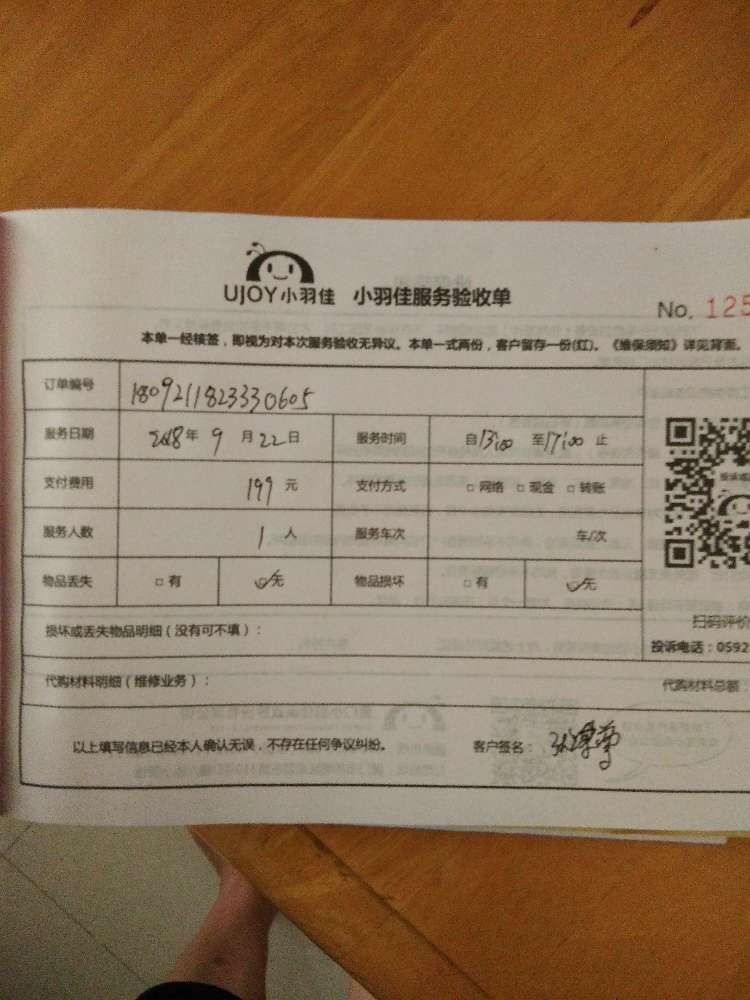 UJOY小羽佳 小羽佳服务验收单
No. 125
本单一经核签，即视为对本次服务验收无异议。本单一式两份，客户留存一份(红)。《维保须知》详见背面。
订单编号 1809211823330605
服务日期 2018年9月22日 服务时间 自13:00 至17:00止
支付费用 199元 支付方式 □网络 □现金 □转账
服务人数 1人 服务车次 车/次
物品丢失 □有 ☑无 物品损坏 □有 ☑无
扫码评价
损坏或丢失物品明细（没有可不填）：
投诉电话：0592
代购材料明细（维修业务）： 代购材料总额
以上填写信息已经本人确认无误，不存在任何争议纠纷。 客户签名：